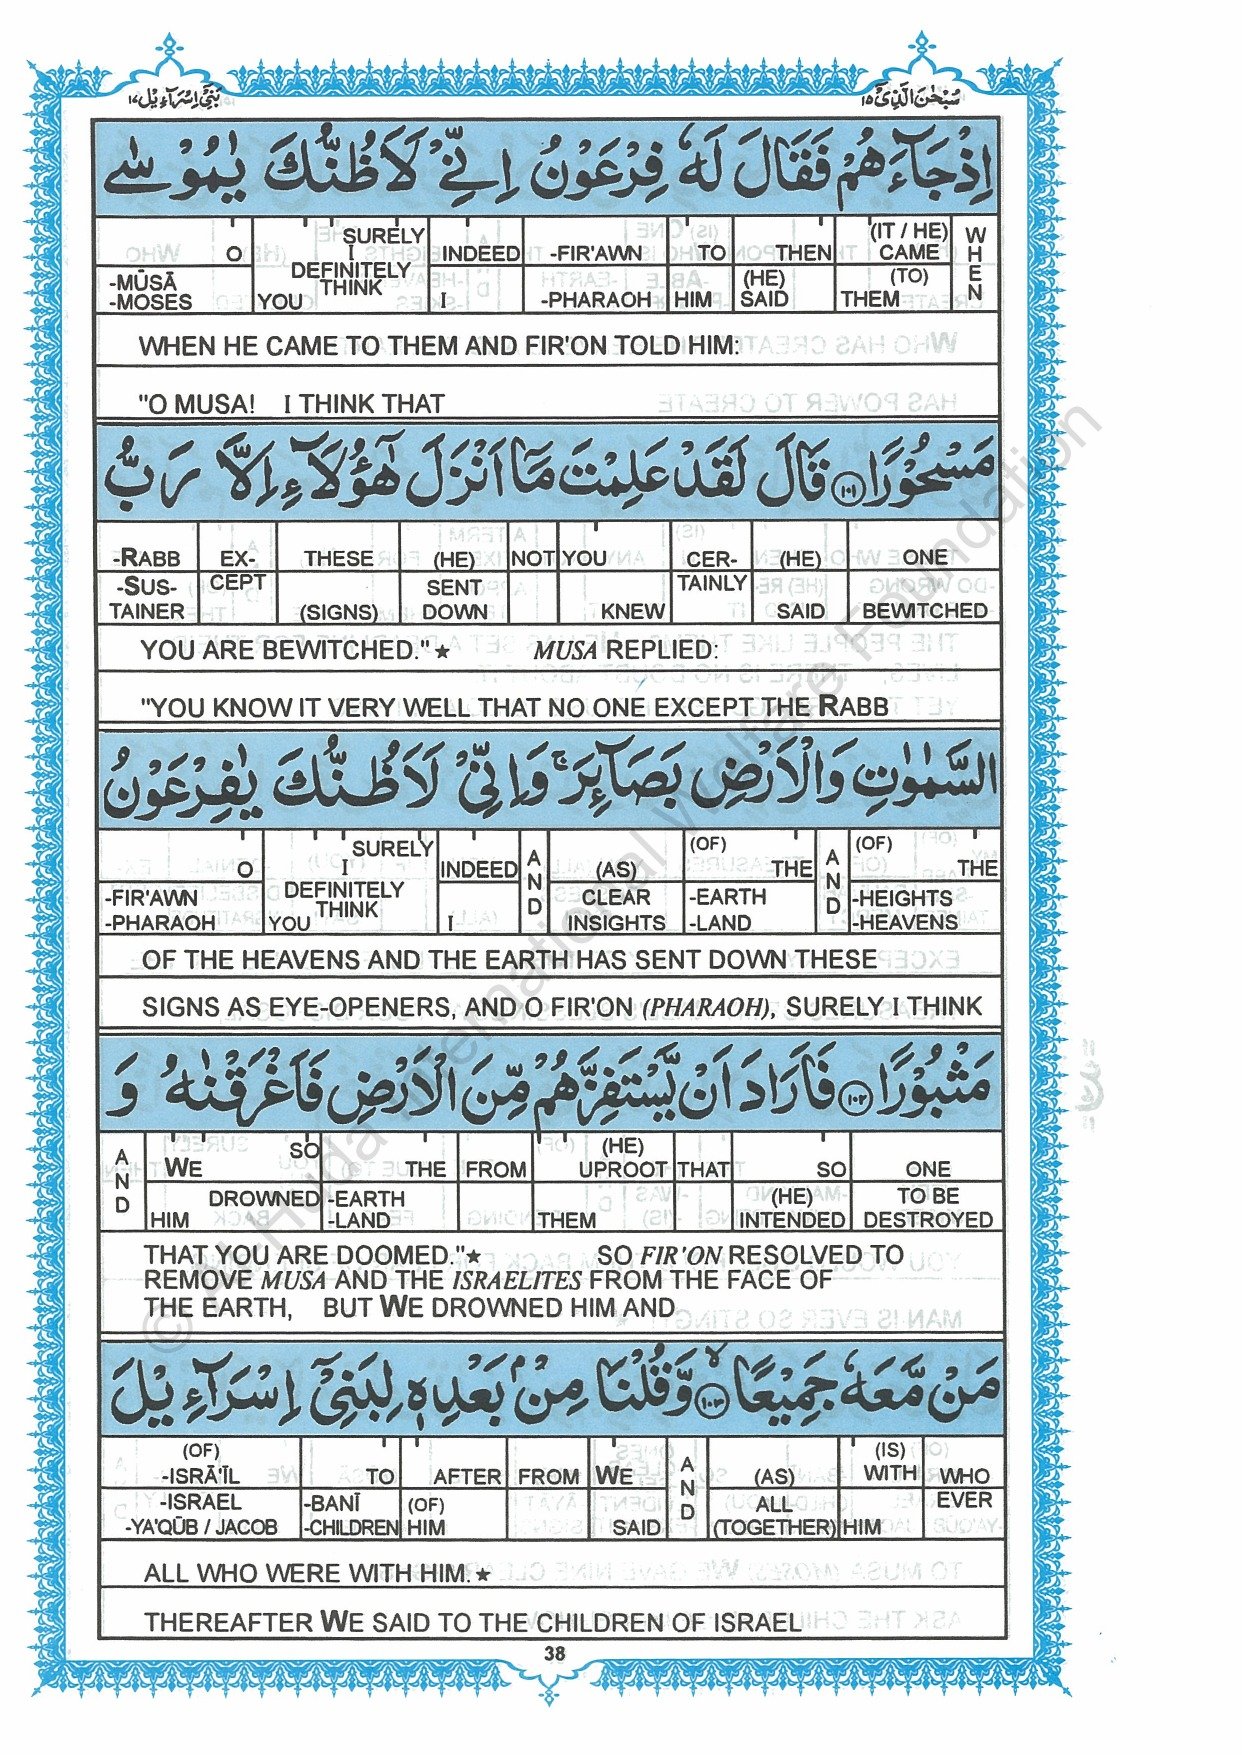 بَنِيْٓ اِسْرَآءِيْل ١٧
سُبْحٰنَ الَّذِيْٓ ١٥
اِذْ جَآءَهُمْ فَقَالَ لَهٗ فِرْعَوْنُ اِنِّيْ لَاَظُنُّكَ يٰمُوْسٰى
O SURELY I DEFINITELY THINK YOU INDEED -FIR'AWN TO THEN (IT / HE) CAME WHEN
-MŪSĀ -MOSES I -PHARAOH HIM (HE) SAID (TO) THEM
WHEN HE CAME TO THEM AND FIR'ON TOLD HIM:
"O MUSA! I THINK THAT
مَسْحُوْرًا ١٠١ قَالَ لَقَدْ عَلِمْتَ مَآ اَنْزَلَ هٰٓؤُلَآءِ اِلَّا رَبُّ
-RABB EX- THESE (HE) NOT YOU CER- (HE) ONE
-SUS- TAINER CEPT (SIGNS) SENT DOWN KNEW TAINLY SAID BEWITCHED
YOU ARE BEWITCHED."★ MUSA REPLIED:
"YOU KNOW IT VERY WELL THAT NO ONE EXCEPT THE RABB
السَّمٰوٰتِ وَالْاَرْضِ بَصَآئِرَ ۚ وَاِنِّيْ لَاَظُنُّكَ يٰفِرْعَوْنُ
O SURELY I DEFINITELY THINK YOU INDEED AND (AS) (OF) THE AND (OF) THE
-FIR'AWN -PHARAOH I CLEAR INSIGHTS -EARTH -LAND -HEIGHTS -HEAVENS
OF THE HEAVENS AND THE EARTH HAS SENT DOWN THESE
SIGNS AS EYE-OPENERS, AND O FIR'ON (PHARAOH), SURELY I THINK
مَثْبُوْرًا ١٠٢ فَاَرَادَ اَنْ يَّسْتَفِزَّهُمْ مِّنَ الْاَرْضِ فَاَغْرَقْنٰهُ وَ
AND WE SO THE FROM (HE) UPROOT THAT SO ONE
DROWNED HIM -EARTH -LAND THEM (HE) INTENDED TO BE DESTROYED
THAT YOU ARE DOOMED."★ SO FIR'ON RESOLVED TO
REMOVE MUSA AND THE ISRAELITES FROM THE FACE OF
THE EARTH, BUT WE DROWNED HIM AND
مَنْ مَّعَهٗ جَمِيْعًا ١٠٣ وَّقُلْنَا مِنْۢ بَعْدِهٖ لِبَنِيْٓ اِسْرَآءِيْلَ
(OF) -ISRĀ'ĪL TO AFTER FROM WE AND (AS) (IS) WITH WHO
-ISRAEL -YA'QŪB / JACOB -BANĪ -CHILDREN (OF) HIM SAID ALL (TOGETHER) HIM EVER
ALL WHO WERE WITH HIM.★
THEREAFTER WE SAID TO THE CHILDREN OF ISRAEL
38
© Al Huda International Welfare Foundation